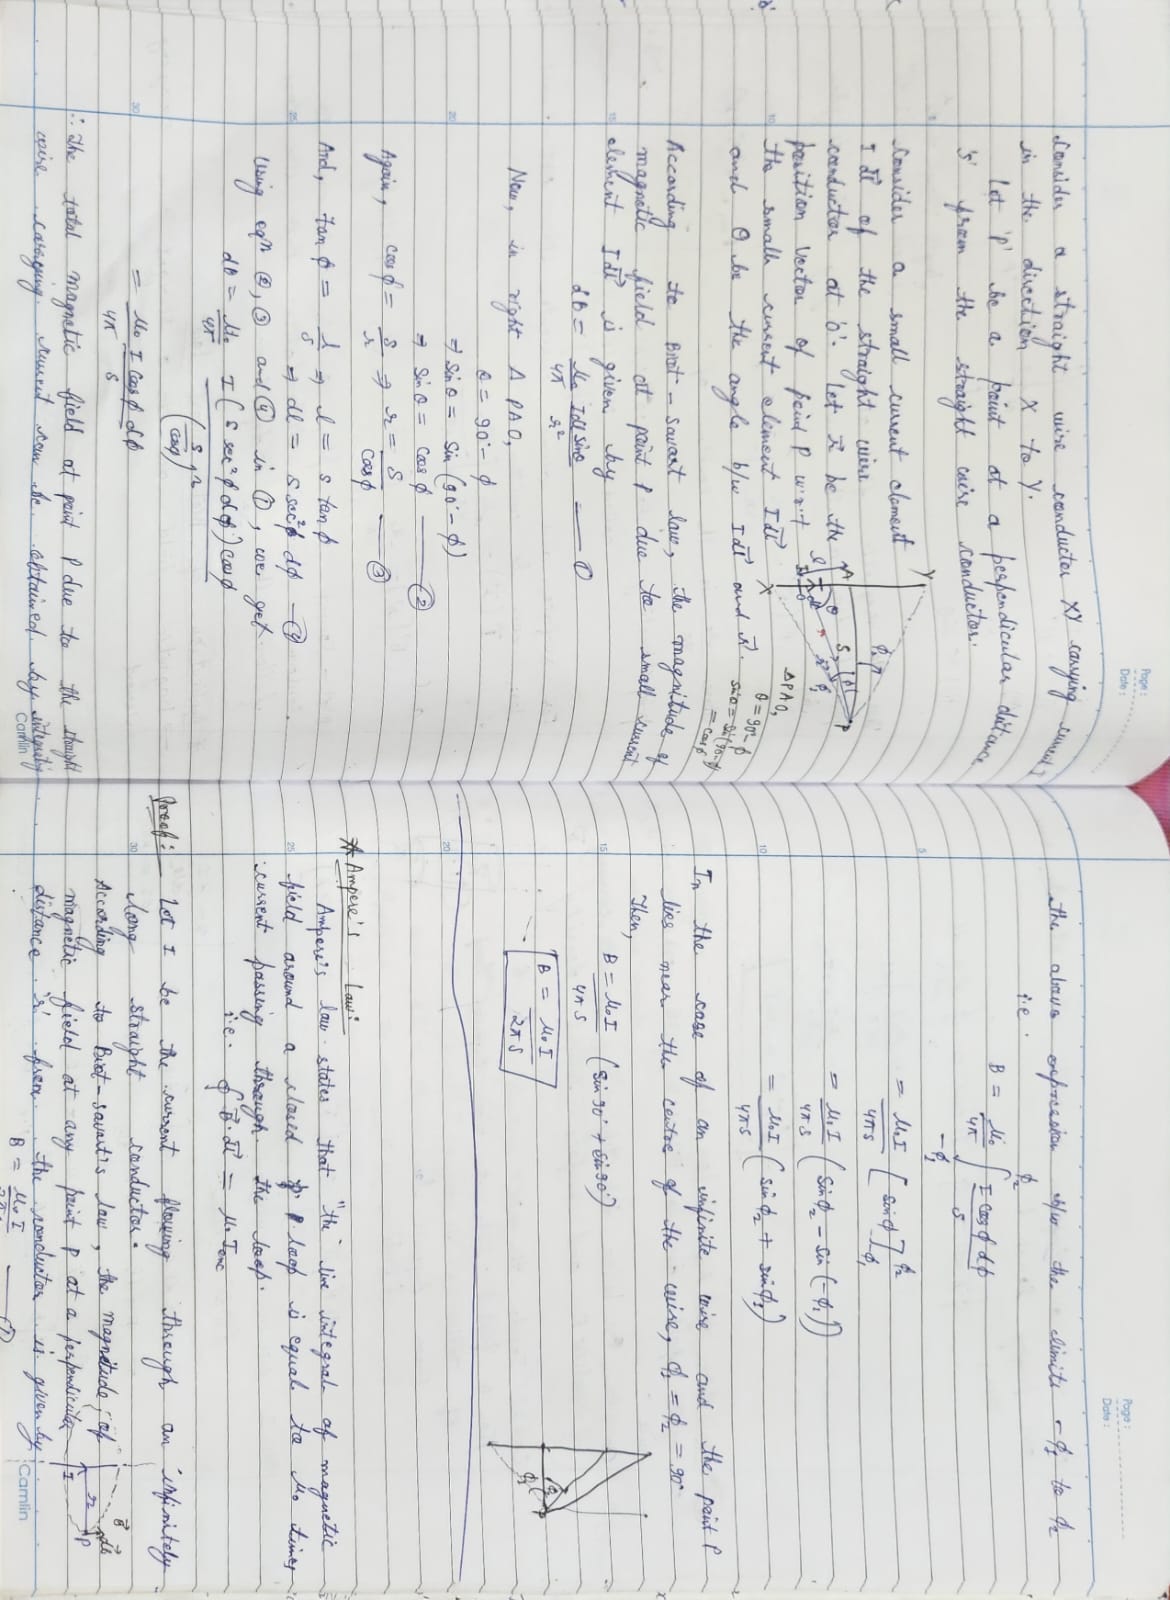 Page:
Date:
Consider a straight wire conductor XY carrying current I
in the direction X to Y.
Let 'P' be a point at a perpendicular distance
's' from the straight wire conductor.
Consider a small current element
I dl of the straight wire
conductor at 'O'. Let r be the
position vector of point P w.r.t
the small current element I dl
and θ be the angle b/w I dl and r.
Y
A
X
l
O
θ
S
r
φ
φ₂
φ₁
P
ΔPAO,
θ = 90° - φ
sinθ = sin(90-φ)
= cosφ
According to Biot - Savart law, the magnitude of
magnetic field at point P due to small current
element I dl is given by
dB = μ₀/4π Idl sinθ/r² —— ①
Now, in right Δ PAO,
θ = 90° - φ
⇒ sinθ = sin(90° - φ)
⇒ sinθ = cosφ —— ②
Again, cosφ = s/r ⇒ r = s/cosφ —— ③
And, tanφ = l/s ⇒ l = s tanφ
⇒ dl = s sec²φ dφ — ④
Using eqⁿ ②, ③ and ④ in ①, we get.
dB = μ₀/4π I (s sec²φ dφ) cosφ / (s/cosφ)²
= μ₀/4π I cosφ dφ/s
∴ The total magnetic field at point P due to the straight
wire carrying current can be obtained by integrating
5
10
15
20
25
30
Camlin
Page:
Date:
the above expression b/w the limits -φ₁ to φ₂
i.e.
B = μ₀/4π ∫_{-φ₁}^{φ₂} I cosφ dφ/s
= μ₀I/4πs [sinφ]_{-φ₁}^{φ₂}
= μ₀I/4πs (sinφ₂ - sin(-φ₁))
= μ₀I/4πs (sinφ₂ + sinφ₁)
In the case of an infinite wire and the point P
lies near the centre of the wire, φ₁ = φ₂ = 90°
Then,
B = μ₀I/4πs (sin90° + sin90°)
B = μ₀I/2πs
φ₂
φ₁
P
* Ampere's Law:
Ampere's law states that "the line integral of magnetic
field around a closed loop is equal to μ₀ times
current passing through the loop.
i.e. ∮ B·dl = μ₀ Ienc
Proof: Let I be the current flowing through an infinitely
long straight conductor.
According to Biot-savart's law, the magnitude of
magnetic field at any point P at a perpendicular
distance 'r' from the conductor is given by
B = μ₀I/2πr
I
r
B
dl
P
5
10
15
20
25
30
Camlin